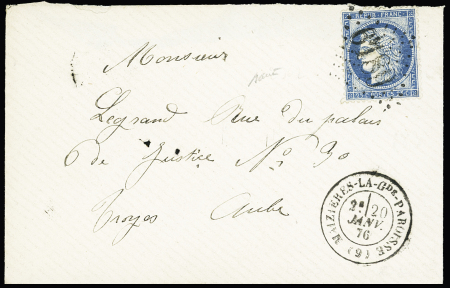 REPUB. FRANC.
Monsieur
Legrand Rue du palais
de Justice No 30
Troyes Aube
MAIZIERES-LA-GDE-PAROISSE (9)
2E 20
JANV.
76